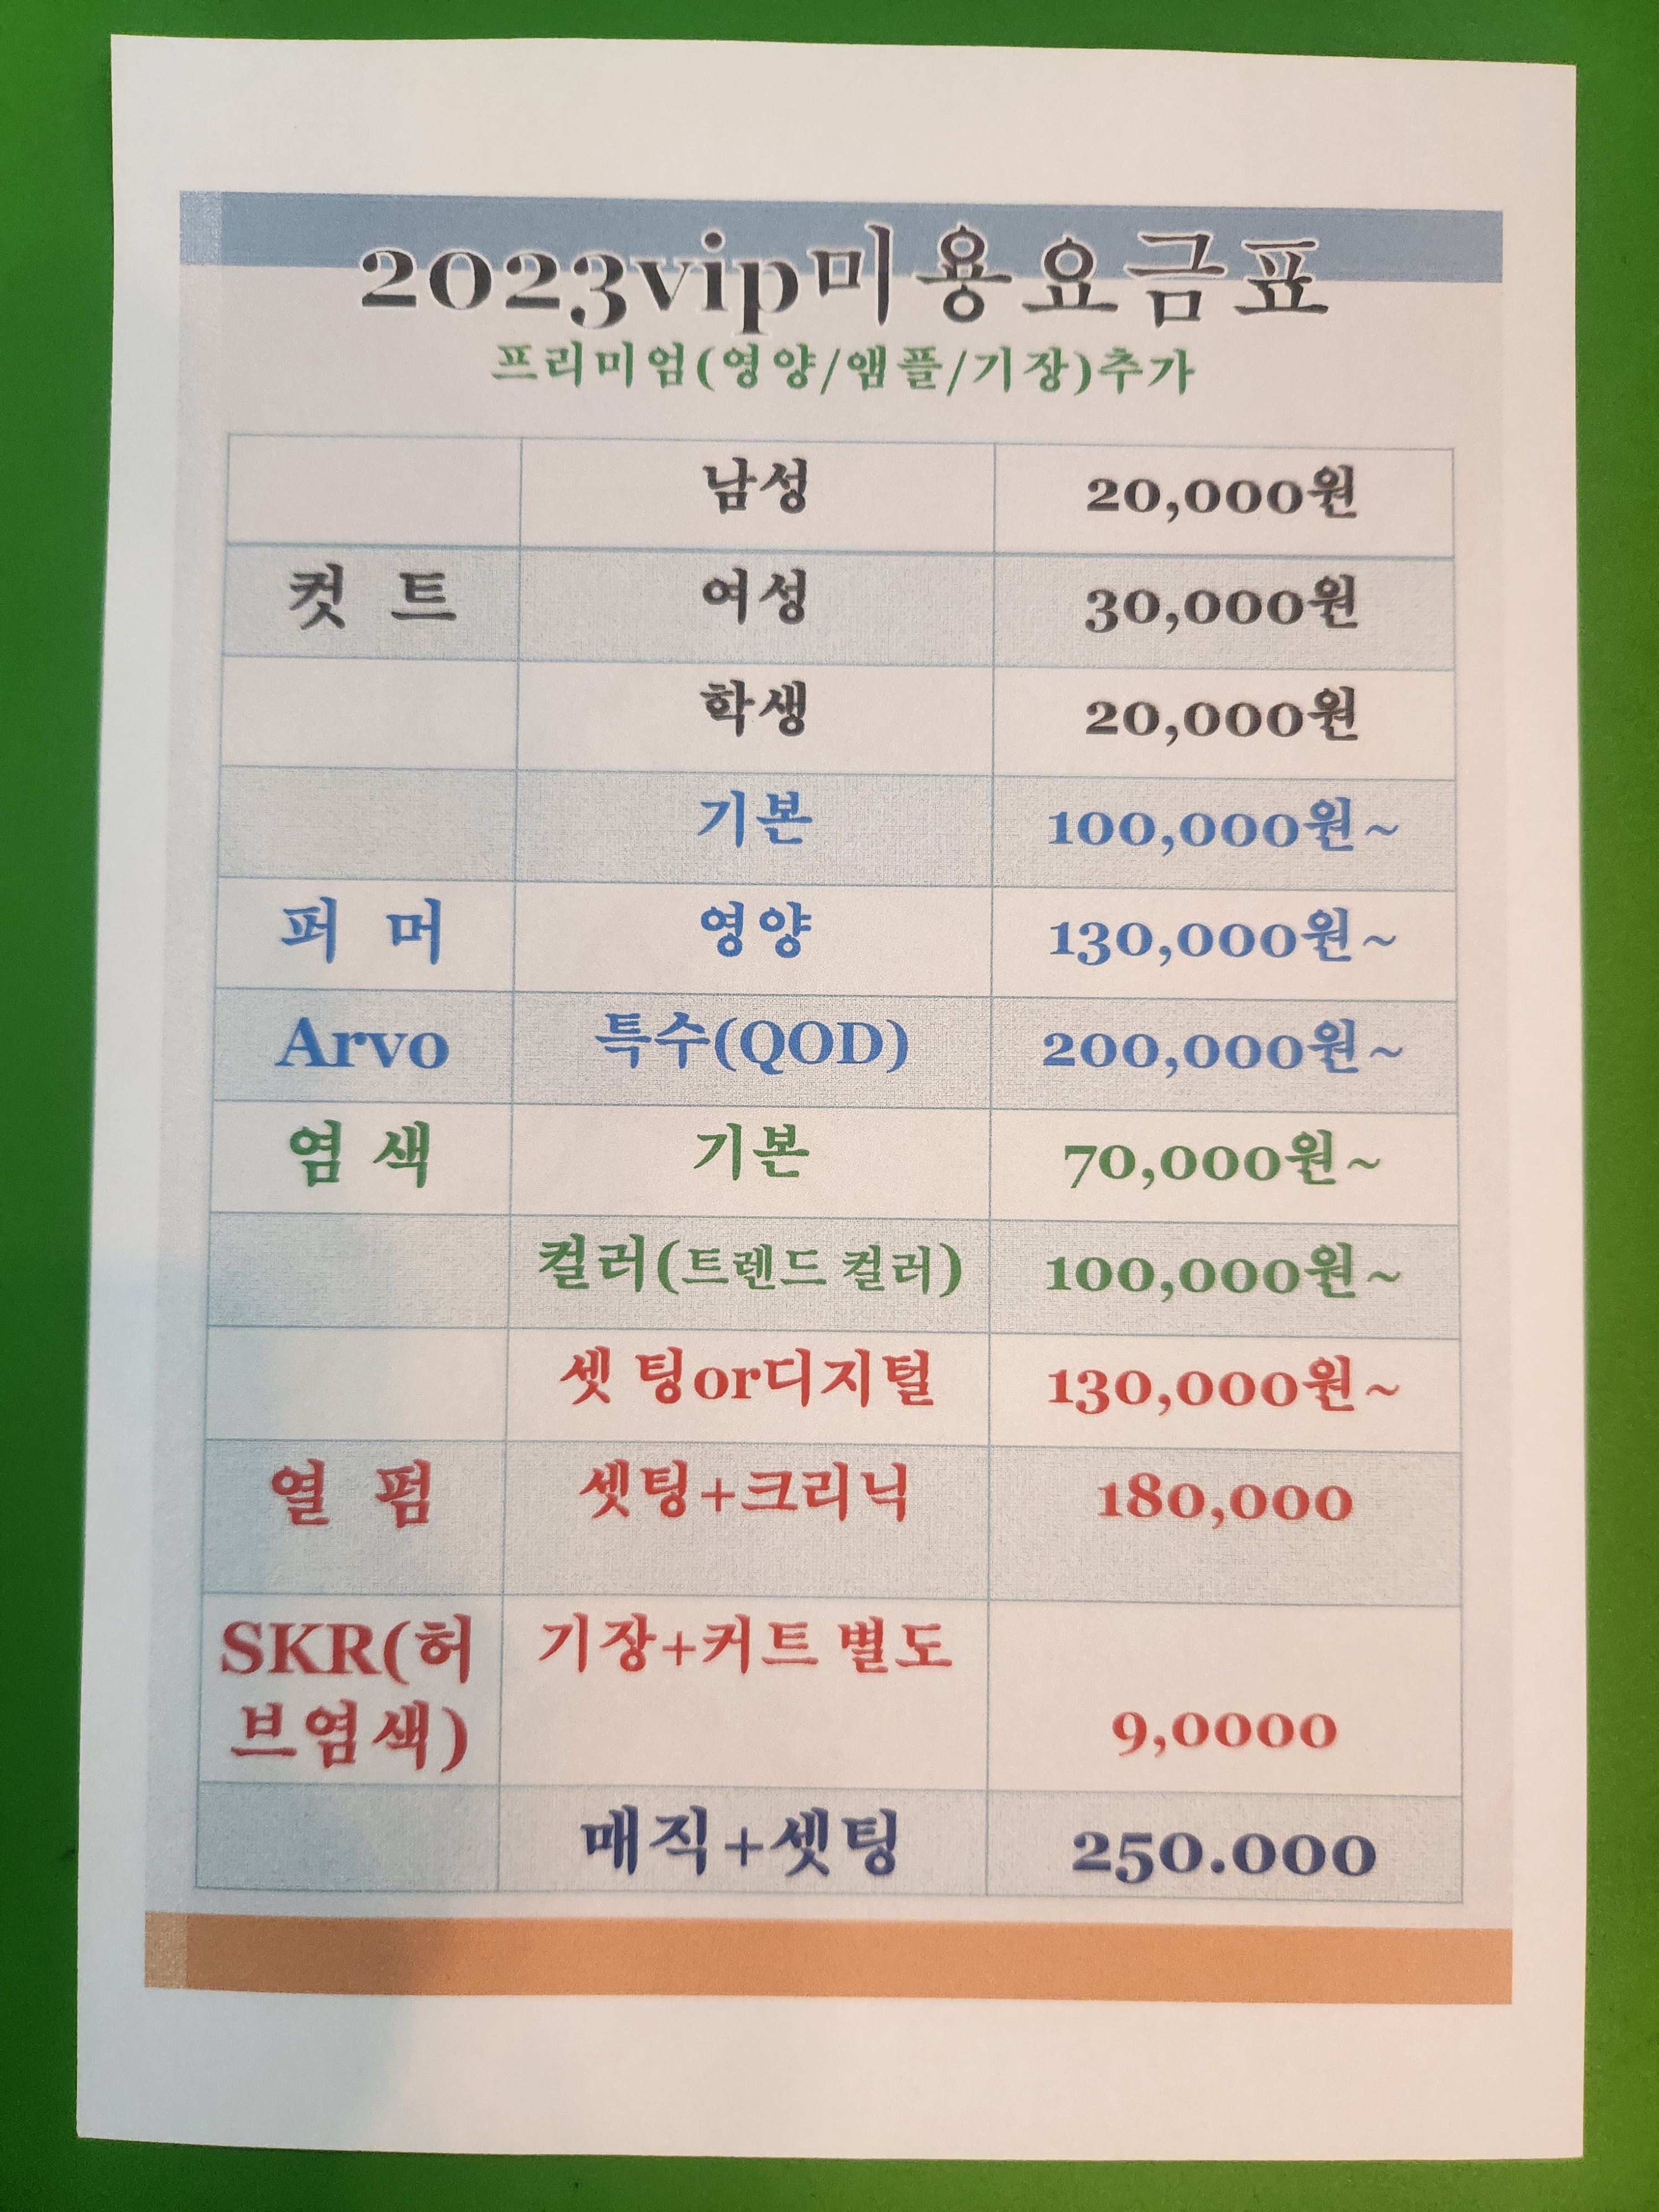 2023vip미용요금표
프리미엄(영양/앰플/기장)추가
남성 20,000원
컷 트 여성 30,000원
학생 20,000원
기본 100,000원~
퍼 머 영양 130,000원~
Arvo 특수(QOD) 200,000원~
염 색 기본 70,000원~
컬러(트렌드 컬러) 100,000원~
셋 팅or디지털 130,000원~
열 펌 셋팅+크리닉 180,000
SKR(허 기장+커트 별도
브염색) 9,0000
매직+셋팅 250.000